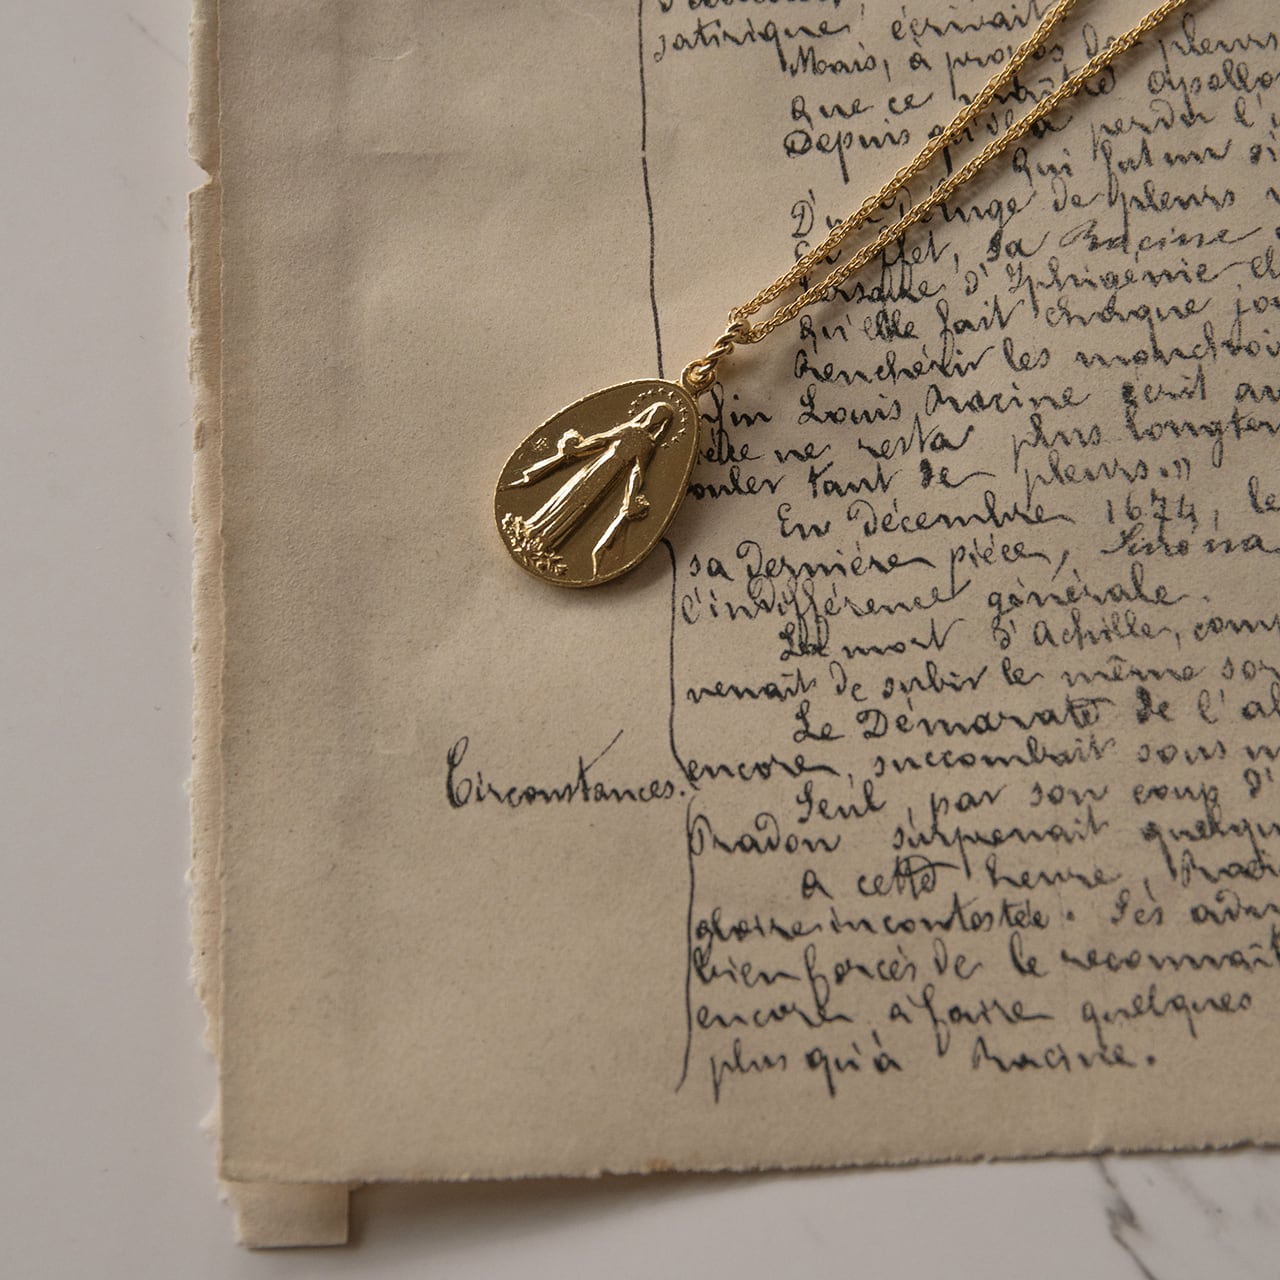 satirique écrivait
Mais, à propos de pleurs
que ce
Depuis qu'il a perdu l'
Qui fut un si
D'un Déluge de pleurs
En effet, sa Racine
d'Iphigénie
qu'elle fait chaque jou
Renchérir les mouchoi
Louis Racine écrit au
ne resta plus longtem
ouler tant de pleurs."
En Décembre 1674, le
sa Dernière pièce, Suréna
l'indifférence générale.
La mort d'Achille, com
venait de subir le même sor
Le Démarate de l'a
encore, succombait sous
Seul, par son coup d'
Circonstances.
Pradon surprenait quelqu
A cette heure, Raci
gloire incontestée. Ses adv
bien forcés de le reconnaît
encore à faire quelques
plus qu'à Racine.